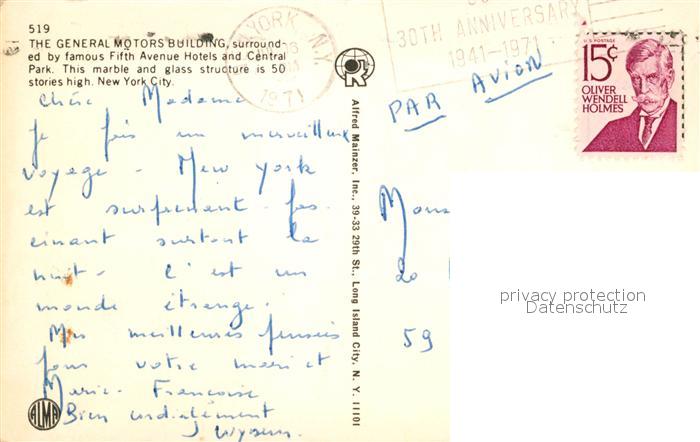 519
THE GENERAL MOTORS BUILDING, surround-
ed by famous Fifth Avenue Hotels and Central
Park. This marble and glass structure is 50
stories high. New York City.
Chère Madame
Je fais un merveilleux
voyage - New York
est surprenant fas-
cinant surtout la
nuit - C'est un
monde étrange.
Mes meilleures pensées
pour votre mari et
Marie-Françoise
Bien cordialement
J
ALMA
R
Alfred Mainzer, Inc., 39-33 29th St., Long Island City, N. Y. 11101
YORK, N.Y.
1971
30TH ANNIVERSARY
1941-1971
PAR AVION
U.S. POSTAGE
15¢
OLIVER
WENDELL
HOLMES
20
59
privacy protection
Datenschutz